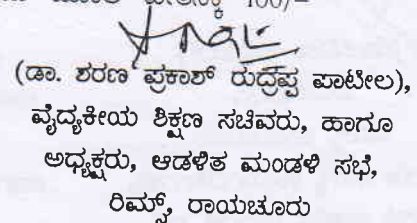 100/-
(ಡಾ. ಶರಣ ಪ್ರಕಾಶ್ ರುದ್ರಪ್ಪ ಪಾಟೀಲ),
ವೈದ್ಯಕೀಯ ಶಿಕ್ಷಣ ಸಚಿವರು, ಹಾಗೂ
ಅಧ್ಯಕ್ಷರು, ಆಡಳಿತ ಮಂಡಳಿ ಸಭೆ,
ರಿಮ್ಸ್, ರಾಯಚೂರು